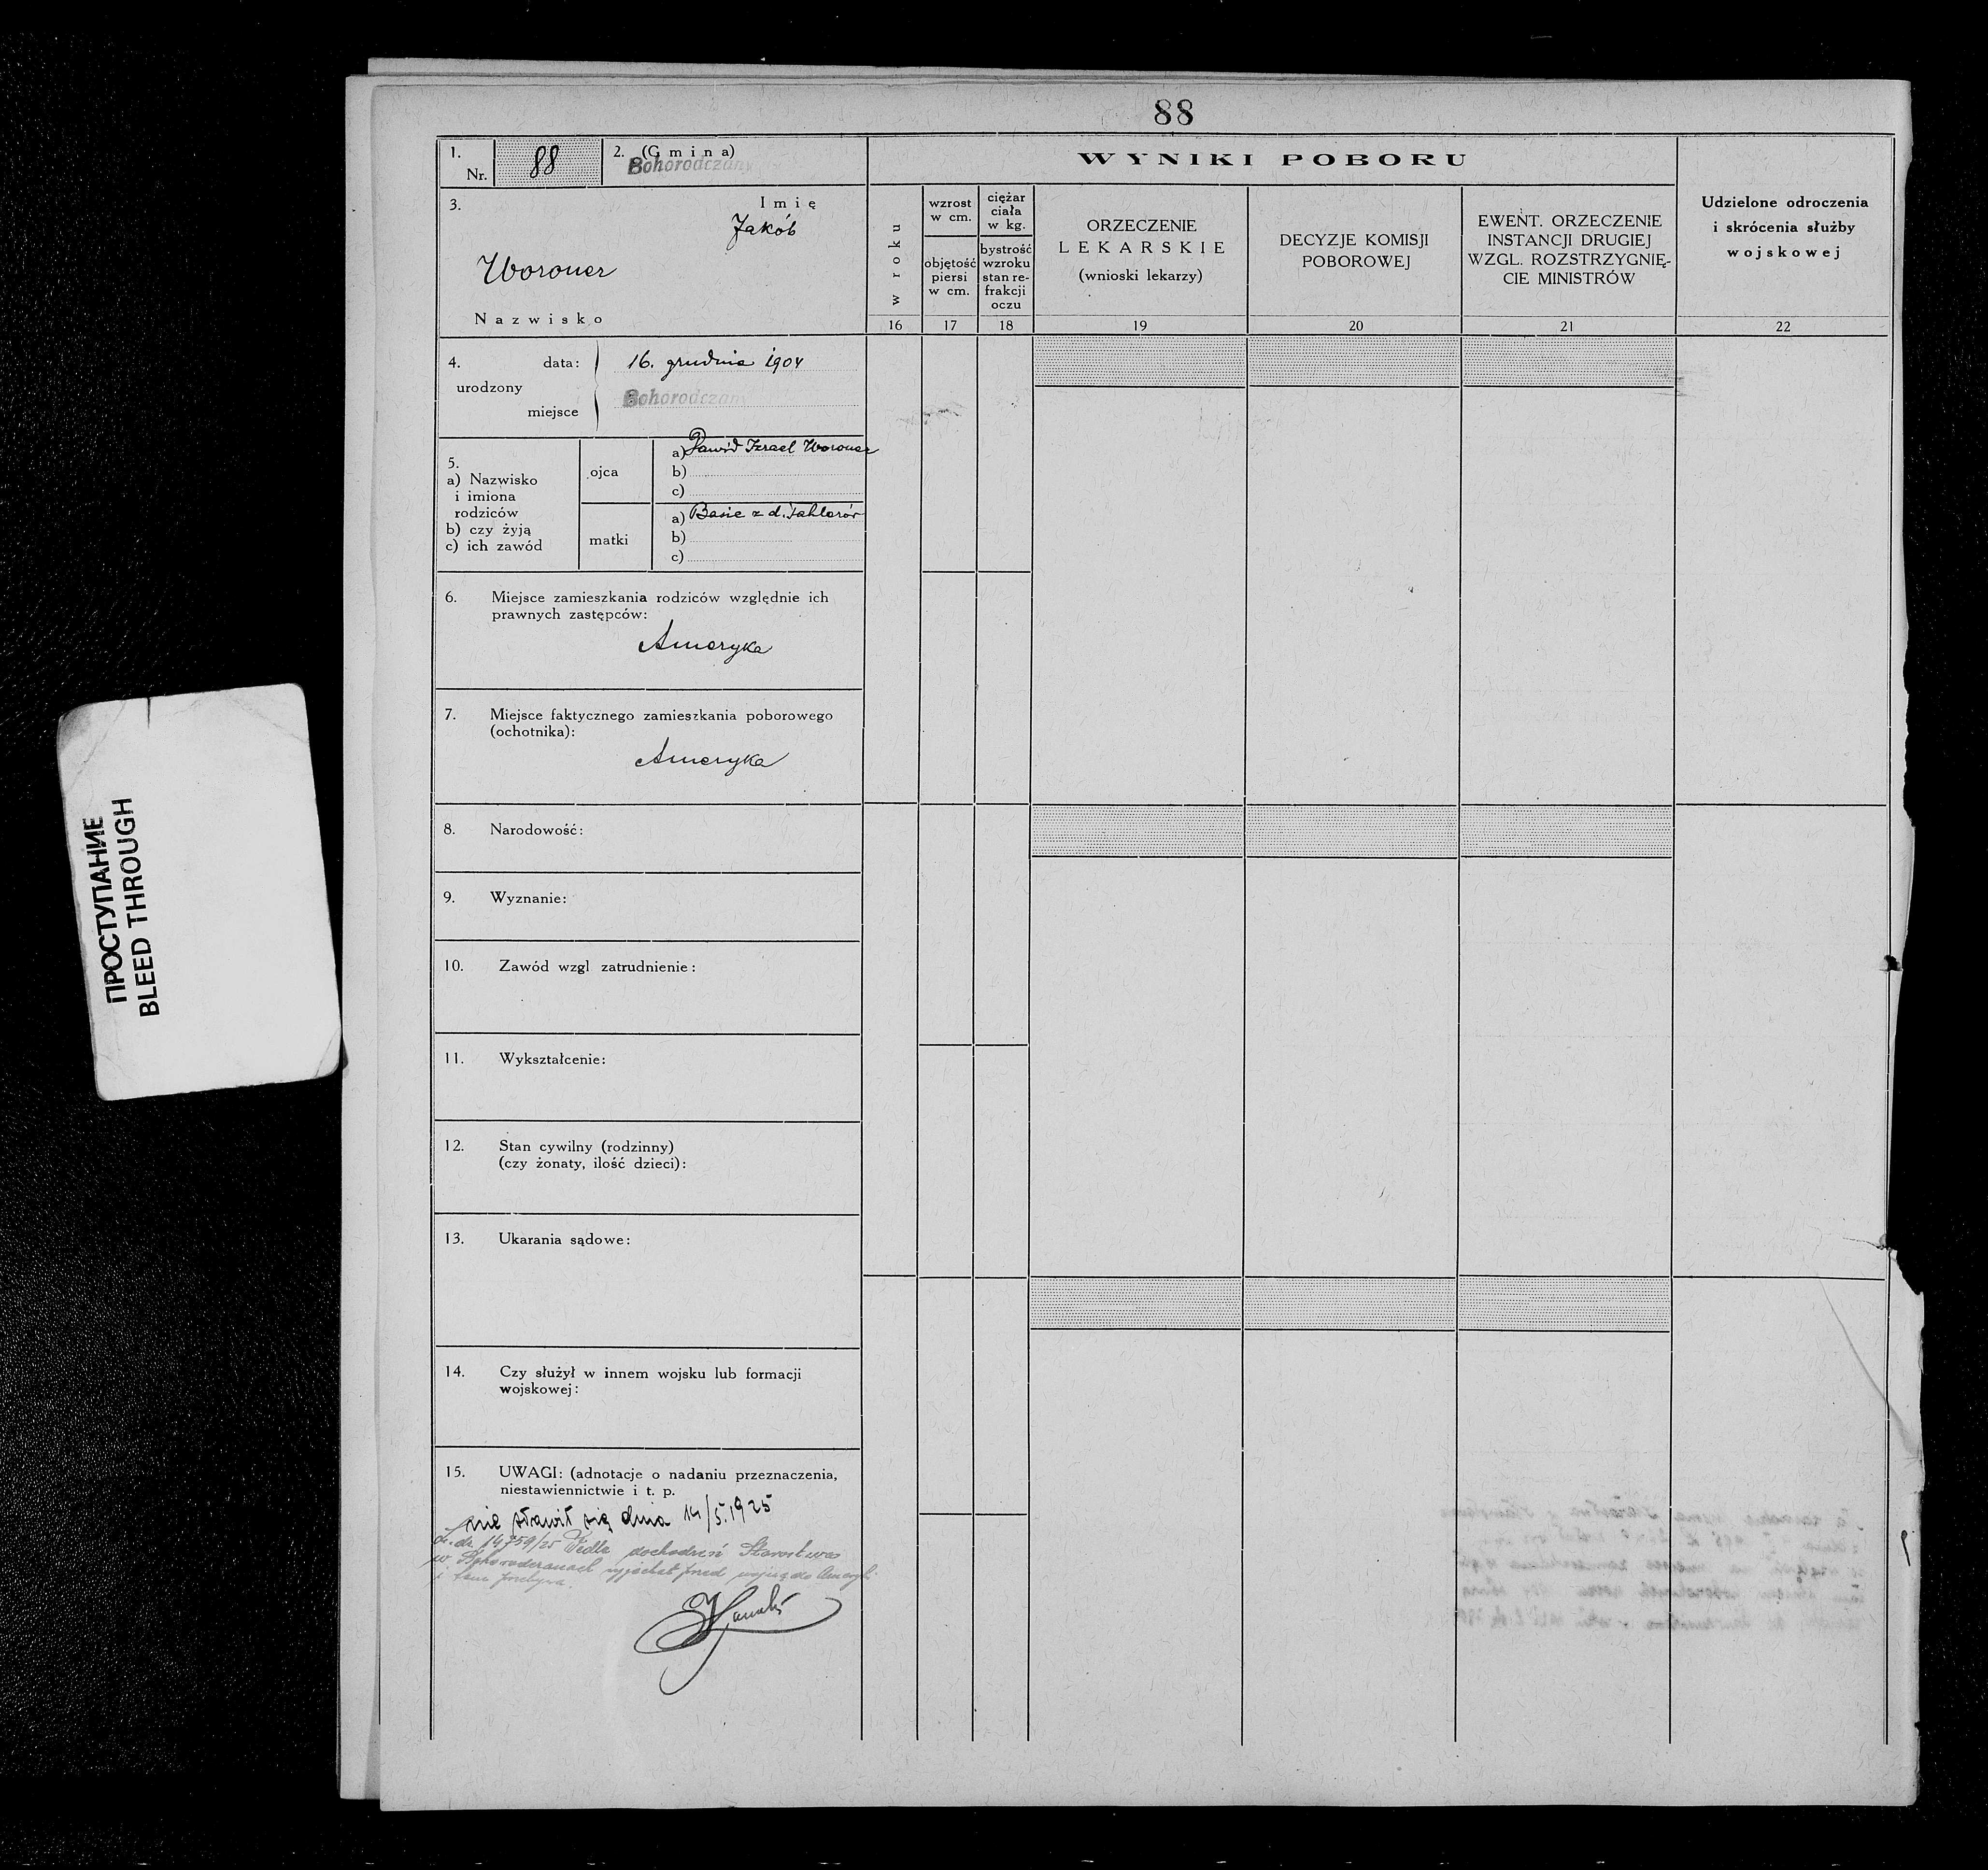 88
1.
Nr.
88
2. (Gmina)
Bohorodczany
3.
Imię
Jakób
Woroner
Nazwisko
WYNIKI POBORU
w roku
wzrost
w cm.
objętość
piersi
w cm.
ciężar
ciała
w kg.
bystrość
wzroku
stan re-
frakcji
oczu
ORZECZENIE
LEKARSKIE
(wnioski lekarzy)
DECYZJE KOMISJI
POBOROWEJ
EWENT. ORZECZENIE
INSTANCJI DRUGIEJ
WZGL. ROZSTRZYGNIĘ-
CIE MINISTRÓW
Udzielone odroczenia
i skrócenia służby
wojskowej
16 17 18 19 20 21 22
4.
urodzony
data: 16. grudnia 1904
miejsce Bohorodczany
5.
a) Nazwisko
i imiona
rodziców
b) czy żyją
c) ich zawód
ojca
a) Dawid Izrael Woroner
b)
c)
matki
a) Basie z d.
b)
c)
6. Miejsce zamieszkania rodziców względnie ich
prawnych zastępców:
Ameryka
7. Miejsce faktycznego zamieszkania poborowego
(ochotnika):
Ameryka
8. Narodowość:
9. Wyznanie:
10. Zawód wzgl zatrudnienie:
11. Wykształcenie:
12. Stan cywilny (rodzinny)
(czy żonaty, ilość dzieci):
13. Ukarania sądowe:
14. Czy służył w innem wojsku lub formacji
wojskowej:
15. UWAGI: (adnotacje o nadaniu przeznaczenia,
niestawiennictwie i t. p.
nie stawił się dnia 14/5.1925
14759/25 Wedle dochodzeń Starostwa
w Bohorodczanach wyjechał przed wojną do Ameryki
i tam przebywa.
ПРОСТУПАНИЕ
BLEED THROUGH